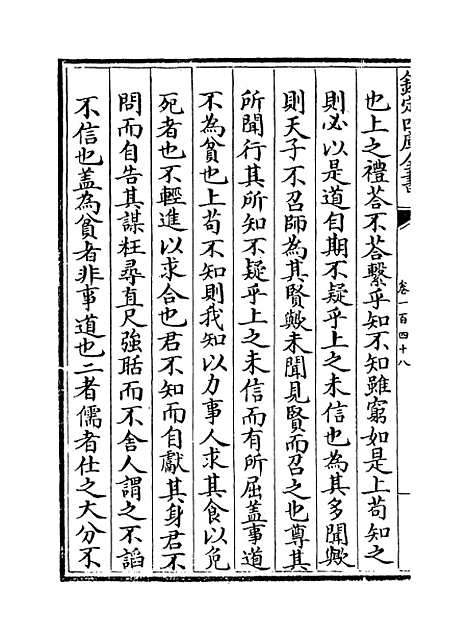 欽定四庫全書
卷一百四十八
也上之禮荅不荅繫乎知不知雖窮如是上苟知之
則必以是道自期不疑乎上之未信也為其多聞歟
則天子不召師為其賢歟未聞見賢而召之也尊其
所聞行其所知不疑乎上之未信而有所屈蓋事道
不為貧也上苟不知則我知以力事人求其食以免
死者也不輕進以求合也君不知而自獻其身君不
問而自告其謀枉尋直尺強聒而不舍人謂之不謟
不信也盖為貧者非事道也二者儒者仕之大分不